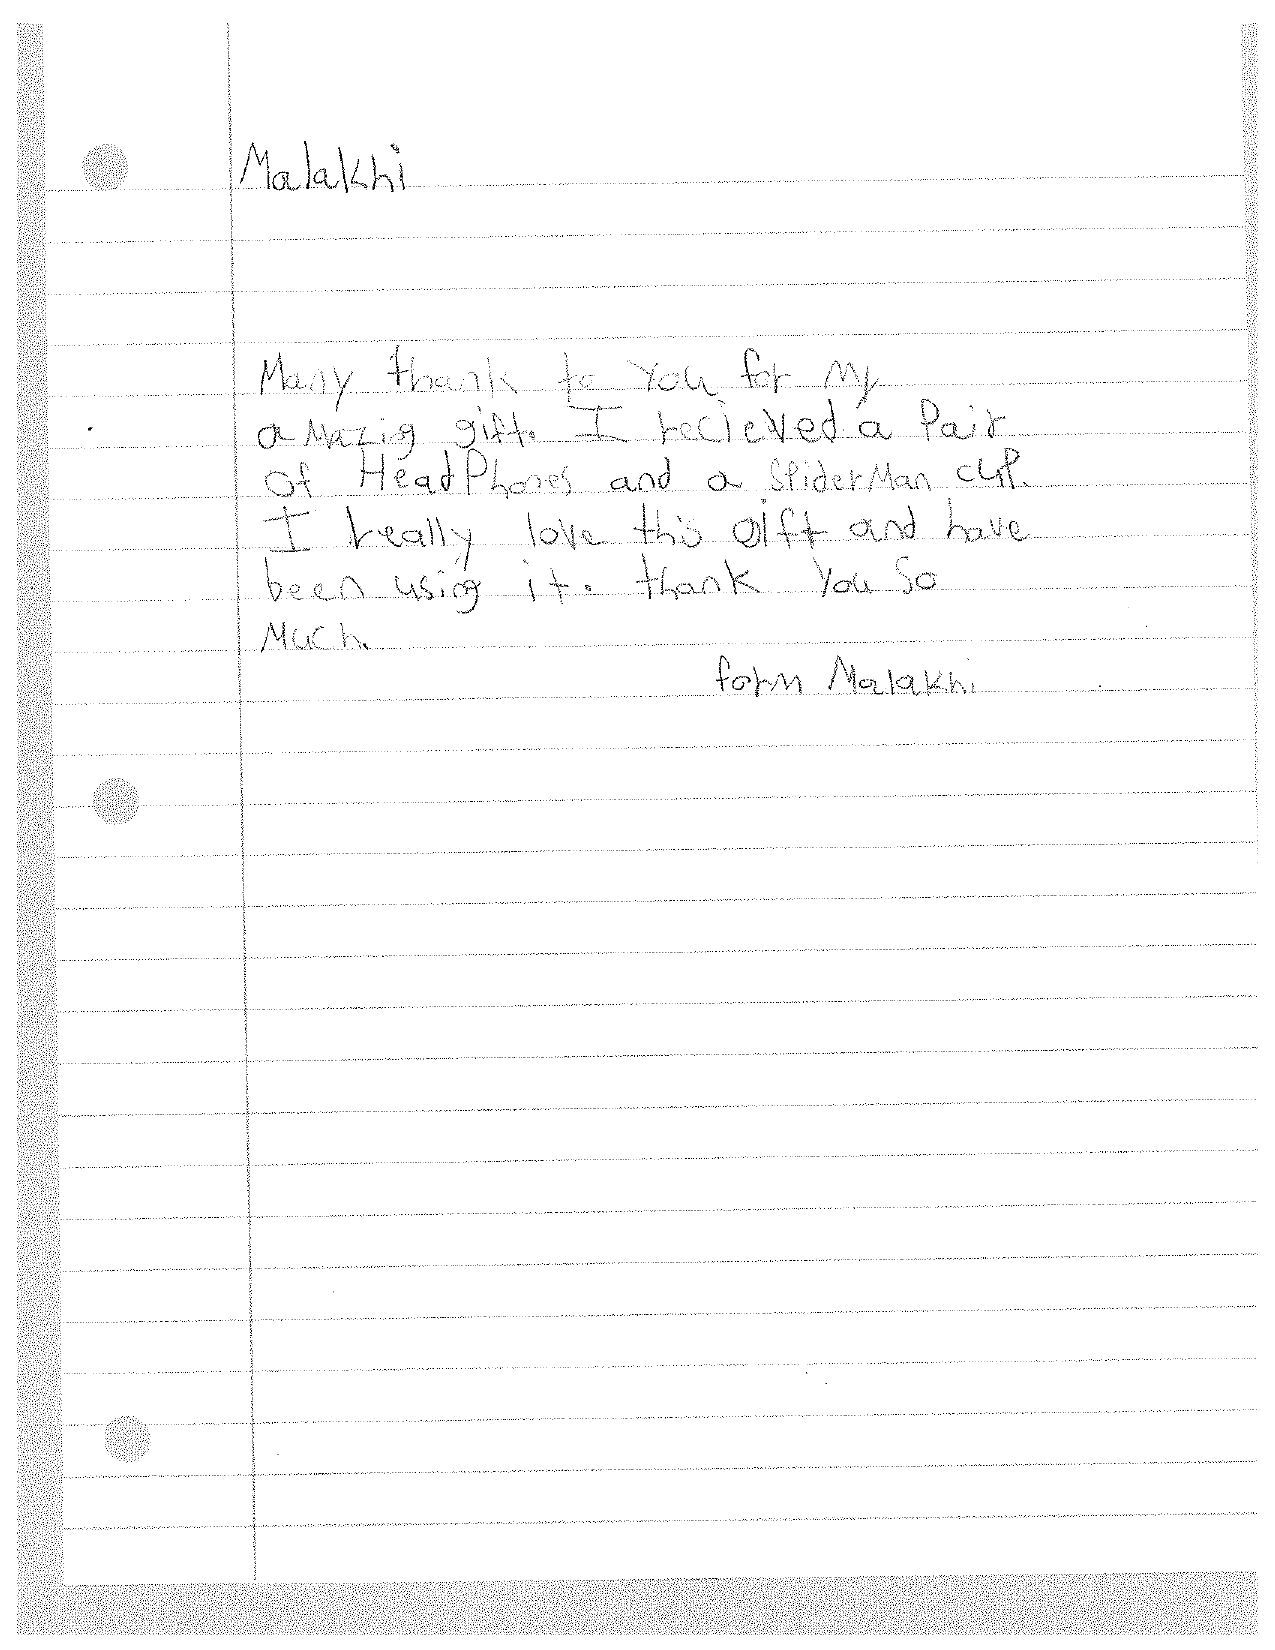 Malakhi
Many thank to You for My
aMazig gift. I recieved a Pair
of HeadPhones and a SpiderMan cup.
I really love this gift and have
been usig it. thank You So
Much.
form Malakhi